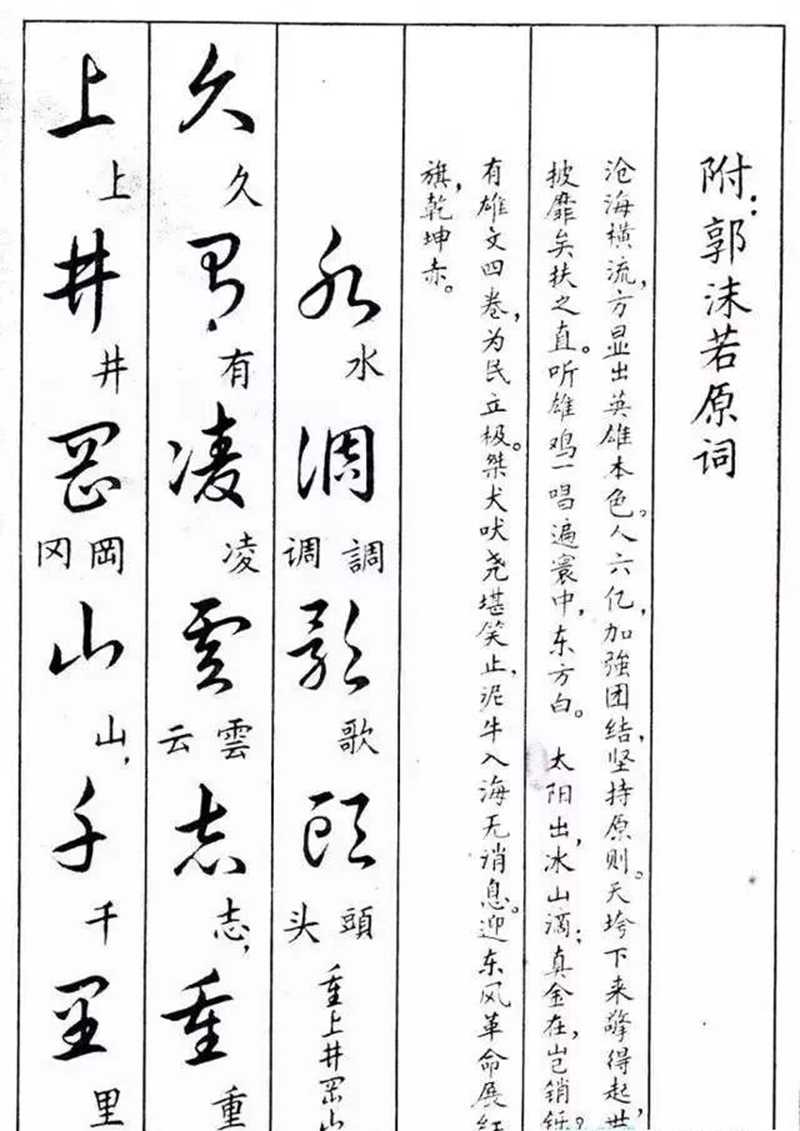 附:郭沫若原词
沧海横流,方显出英雄本色。人六亿,加強团结,坚持原则。天垮下来擎得起,世
披靡矣扶之直。听雄鸡一唱遍寰中,东方白。 太阳出,冰山滴;真金在,岂销铄?
有雄文四卷,为民立极。桀犬吠尧堪笑止,泥牛入海无消息。迎东风革命展红
旗,乾坤赤。
水 水 調 調 调 歌 歌 頭 頭 头 重上井岡山
久 久 有 有 凌 凌 雲 雲 云 志 志, 重 重
上 上 井 井 岡 岡 冈 山 山, 千 千 里 里